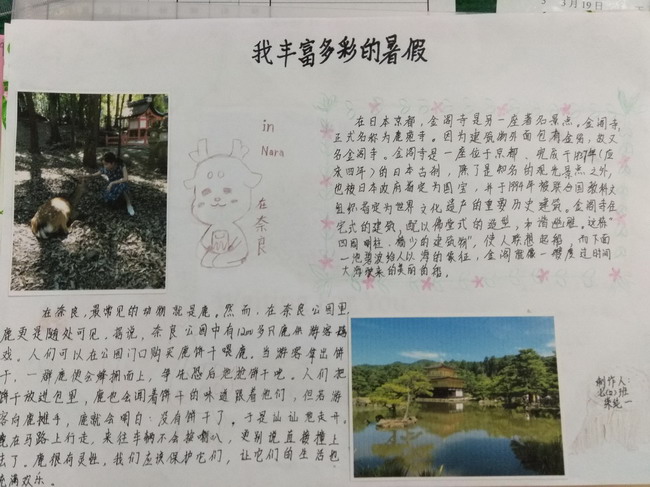 3月19日
我丰富多彩的暑假
in
Nara
在奈良
在日本京都，金阁寺是另一座著名景点。金阁寺，
正式名称为鹿苑寺。因为建筑物外面包有金箔，故又
名金阁寺。金阁寺是一座位于京都、完成于1397年(应
永四年)的日本古刹，除了是知名的观光景点之外，
也被日本政府指定为国宝，并于1994年被联合国教科文
组织指定为世界文化遗产的重要历史建筑。金阁寺
式的建筑，以佛堂式的造型，
四国，稀少的建筑物"，使人联想起船，而下面
一池碧波给人以海的象征，金阁就像一艘度过时间
大海驶来的美丽的船。
在奈良，最常见的动物就是鹿。然而，在奈良公园里，
鹿更是随处可见。据说，奈良公园中有1200多只鹿供游客嬉
戏。人们可以在公园门口购买鹿饼干喂鹿。当游客拿出饼
干，一群鹿便会蜂拥而上，争先恐后抢抢饼干吃。人们把
饼干放进包里，鹿也会闻着饼干的味道跟着他们，但若游
客向鹿摊手，鹿就会明白：没有饼干了。于是讪讪走开。
鹿在马路上行走，来往车辆不会按喇叭，更别说直接撞上
去了。鹿很有灵性，我们应该保护它们，让它们的生活充
满欢乐。
制作人：
班